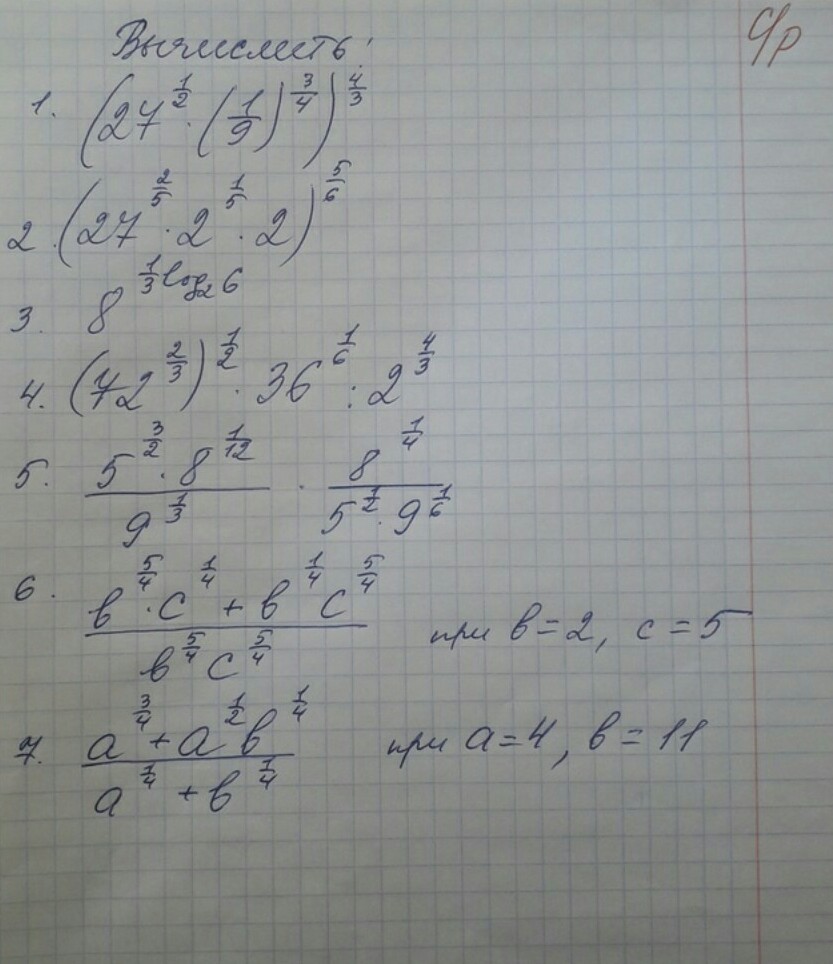 Вычислить!
1. (27^{1/2} · (1/9)^{3/4})^{4/3}
2. (27^{2/5} · 2^{1/5} · 2)^{5/6}
3. 8^{1/3 log_2 6}
4. (72^{2/3})^{1/2} · 36^{1/6} : 2^{4/3}
5. (5^{3/2} · 8^{1/12}) / 9^{1/3} · 8^{1/4} / (5^{1/2} · 9^{1/6})
6. (в^{5/4} · с^{1/4} + в^{1/4} с^{5/4}) / (в^{5/4} с^{5/4}) при в = 2, с = 5
7. (а^{3/4} + а^{1/2} в^{1/4}) / (а^{1/4} + в^{1/4}) при а = 4, в = 11